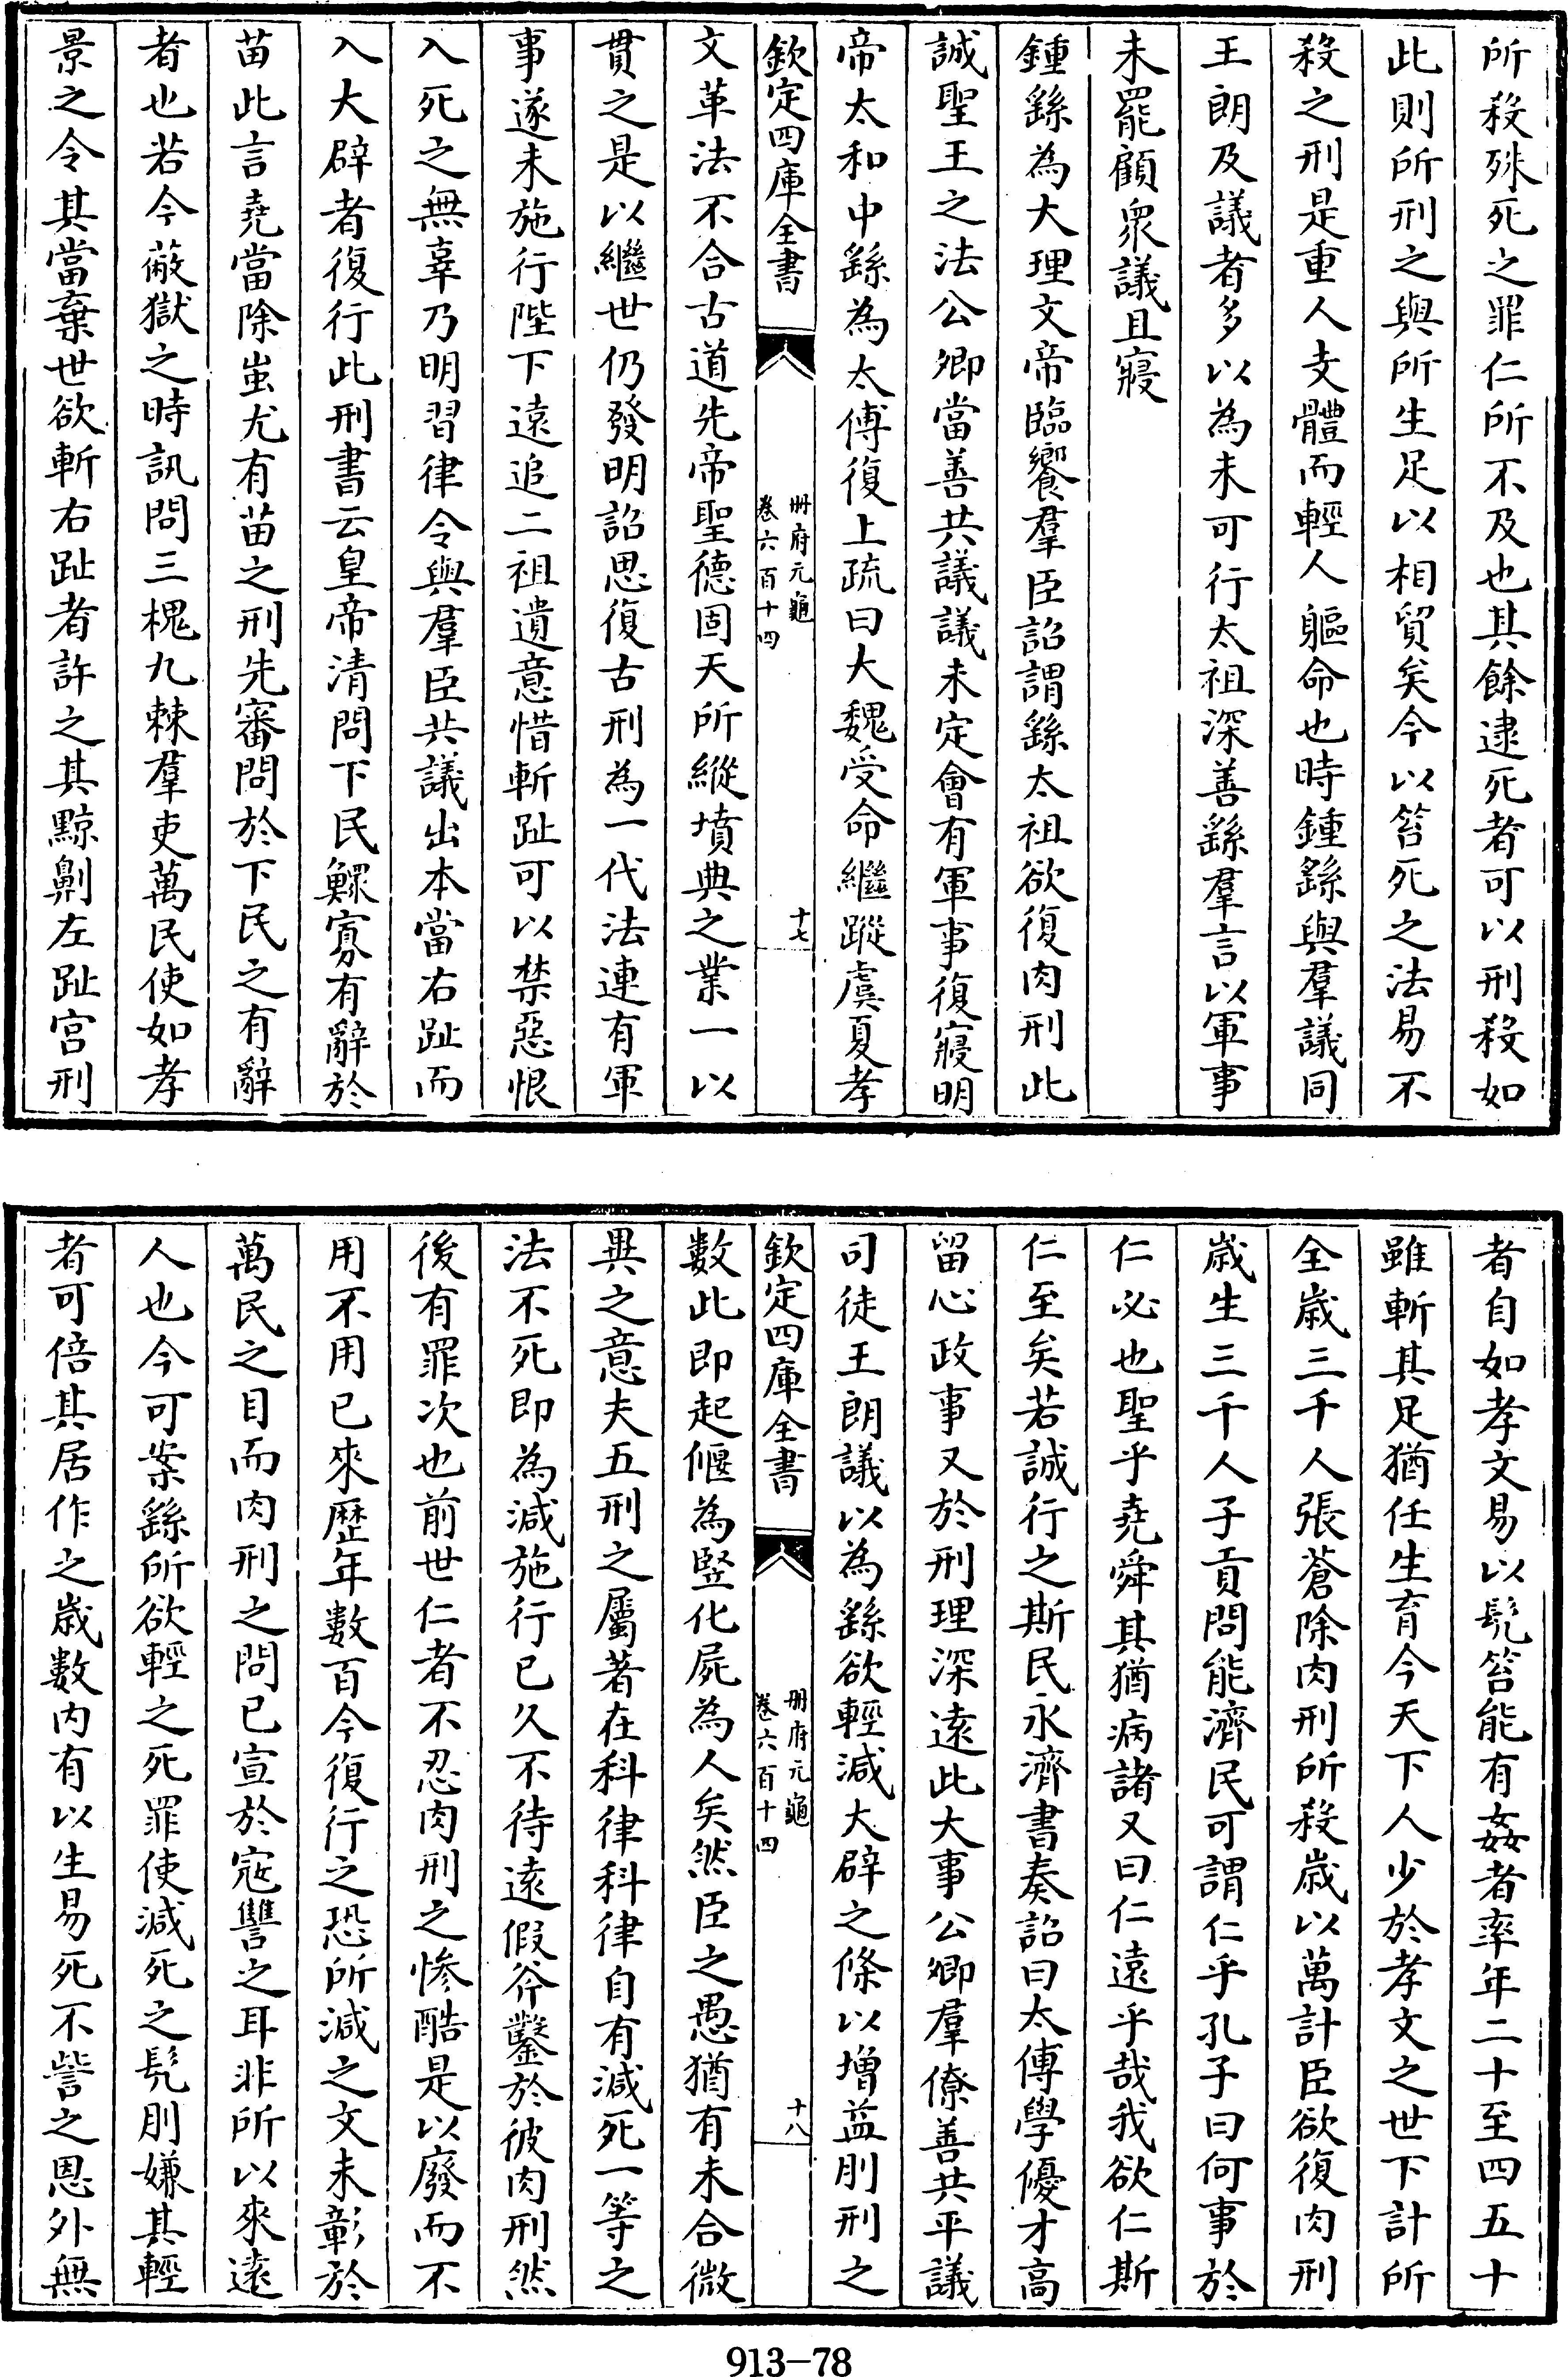 所殺殊死之罪仁所不及也其餘逮死者可以刑殺如
此則所刑之與所生足以相貿矣今以笞死之法易不
殺之刑是重人支體而輕人軀命也時鍾繇與羣議同
王朗及議者多以為未可行太祖深善繇羣言以軍事
未罷顧衆議且寢
鍾繇為大理文帝臨饗羣臣詔謂繇太祖欲復肉刑此
誠聖王之法公卿當善共議議未定會有軍事復寢明
帝太和中繇為太傅復上疏曰大魏受命繼蹤虞夏孝
欽定四庫全書
冊府元龜
卷六百十四
十七
文革法不合古道先帝聖德固天所縱墳典之業一以
貫之是以繼世仍發明詔思復古刑為一代法連有軍
事遂未施行陛下遠追二祖遺意惜斬趾可以禁惡恨
入死之無辜乃明習律令與羣臣共議出本當右趾而
入大辟者復行此刑書云皇帝清問下民鰥寡有辭於
苗此言堯當除蚩尤有苗之刑先審問於下民之有辭
者也若今蔽獄之時訊問三槐九棘羣吏萬民使如孝
景之令其當棄世欲斬右趾者許之其黥劓左趾宮刑
者自如孝文易以髠笞能有姦者率年二十至四五十
雖斬其足猶任生育今天下人少於孝文之世下計所
全歲三千人張蒼除肉刑所殺歲以萬計臣欲復肉刑
歲生三千人子貢問能濟民可謂仁乎孔子曰何事於
仁必也聖乎堯舜其猶病諸又曰仁遠乎哉我欲仁斯
仁至矣若誠行之斯民永濟書奏詔曰太傅學優才高
留心政事又於刑理深遠此大事公卿羣僚善共平議
司徒王朗議以為繇欲輕減大辟之條以增益刖刑之
欽定四庫全書
冊府元龜
卷六百十四
十八
數此即起偃為竪化屍為人矣然臣之愚猶有未合微
異之意夫五刑之屬著在科律科律自有減死一等之
法不死即為減施行已久不待遠假斧鑿於彼肉刑然
後有罪次也前世仁者不忍肉刑之慘酷是以廢而不
用不用已來歷年數百今復行之恐所減之文未彰於
萬民之目而肉刑之問已宣於寇讐之耳非所以來遠
人也今可案繇所欲輕之死罪使減死之髠刖嫌其輕
者可倍其居作之歲數内有以生易死不訾之恩外無
913-78